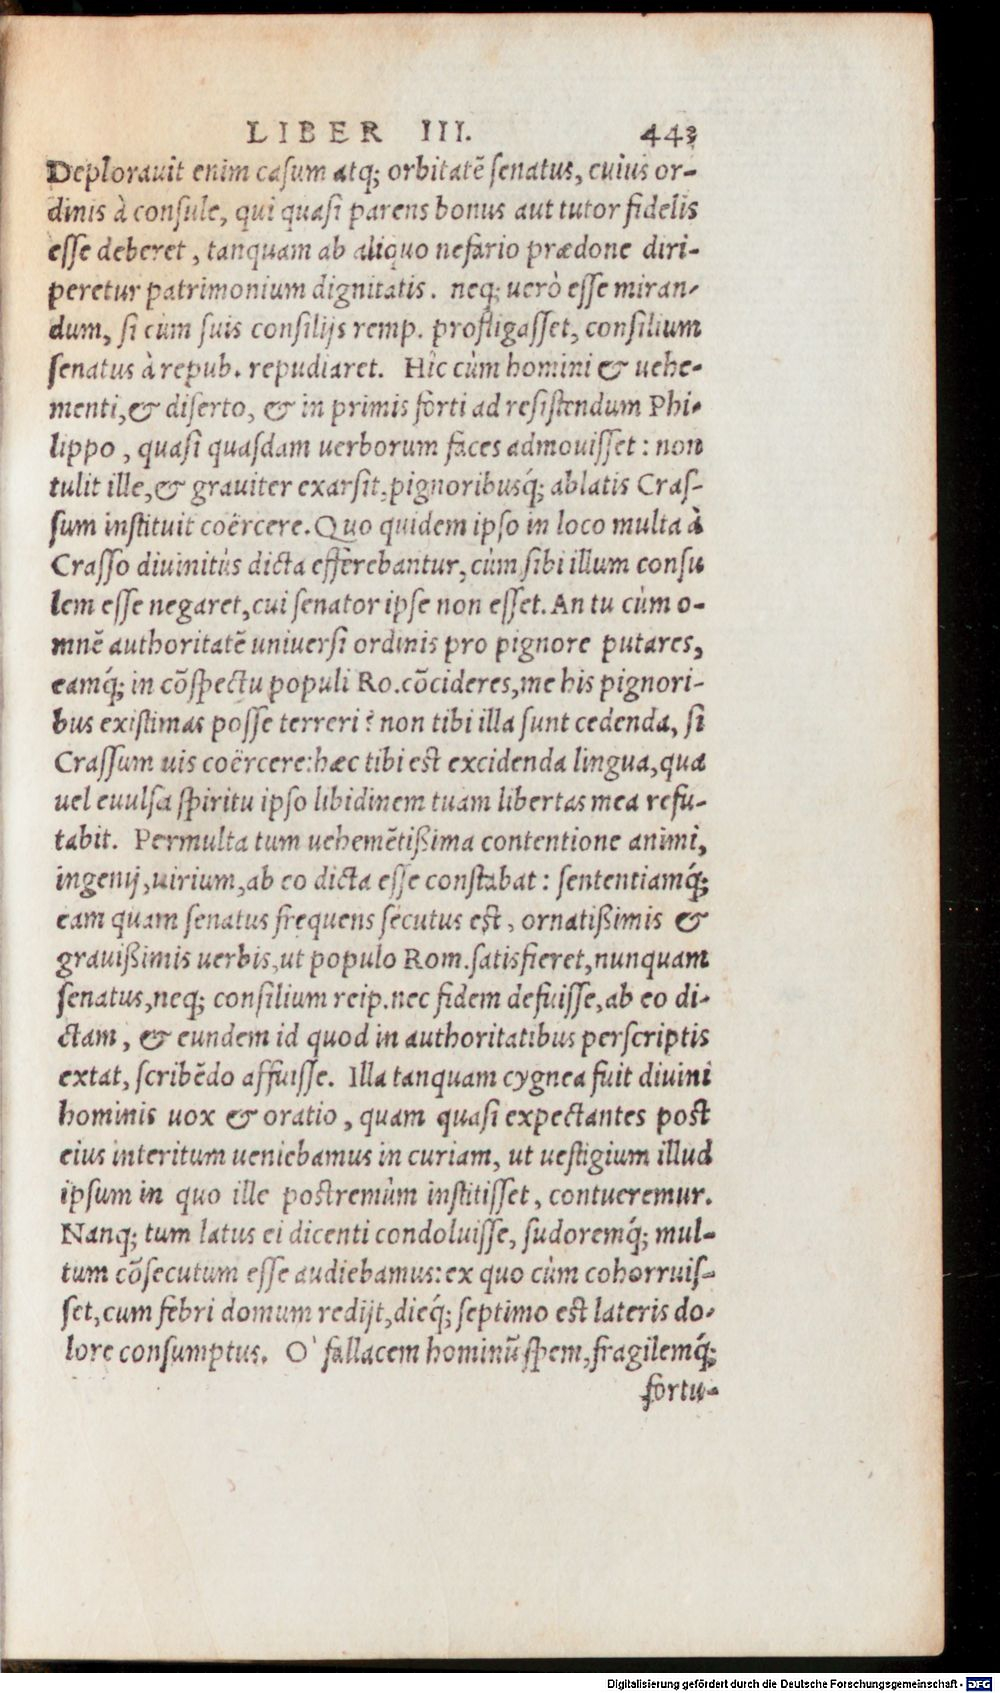 LIBER III. 443
Deplorauit enim casum atq; orbitatē senatus, cuius or-
dinis à consule, qui quasi parens bonus aut tutor fidelis
esse deberet, tanquam ab aliquo nefario prædone diri-
peretur patrimonium dignitatis. neq; uerò esse miran-
dum, si cùm suis consilijs remp. profligasset, consilium
senatus à repub. repudiaret. Hîc cùm homini & uehe-
menti, & diserto, & in primis forti ad resistendum Phi-
lippo, quasi quasdam uerborum faces admouisset: non
tulit ille, & grauiter exarsit, pignoribusq́; ablatis Cras-
sum instituit coërcere. Quo quidem ipso in loco multa à
Crasso diuinitùs dicta efferebantur, cùm sibi illum consu
lem esse negaret, cui senator ipse non esset. An tu cùm o-
mnē authoritatē uniuersi ordinis pro pignore putares,
eamq́; in cōspectu populi Ro. cōcideres, me his pignori-
bus existimas posse terreri? non tibi illa sunt cedenda, si
Crassum uis coërcere: hæc tibi est excidenda lingua, qua
uel euulsa spiritu ipso libidinem tuam libertas mea refu-
tabit. Permulta tum uehemētißima contentione animi,
ingenij, uirium, ab eo dicta esse constabat: sententiamq́;
eam quam senatus frequens secutus est, ornatißimis &
grauißimis uerbis, ut populo Rom. satisfieret, nunquam
senatus, neq; consilium reip. nec fidem defuisse, ab eo di-
ctam, & eundem id quod in authoritatibus perscriptis
extat, scribēdo affuisse. Illa tanquam cygnea fuit diuini
hominis uox & oratio, quam quasi expectantes post
eius interitum ueniebamus in curiam, ut uestigium illud
ipsum in quo ille postremùm institisset, contueremur.
Nanq; tum latus ei dicenti condoluisse, sudoremq́; mul-
tum cōsecutum esse audiebamus: ex quo cùm cohorruis-
set, cum febri domum redijt, dieq́; septimo est lateris do-
lore consumptus. O' fallacem hominū spem, fragilemq́;
fortu-
Digitalisierung gefördert durch die Deutsche Forschungsgemeinschaft - DFG